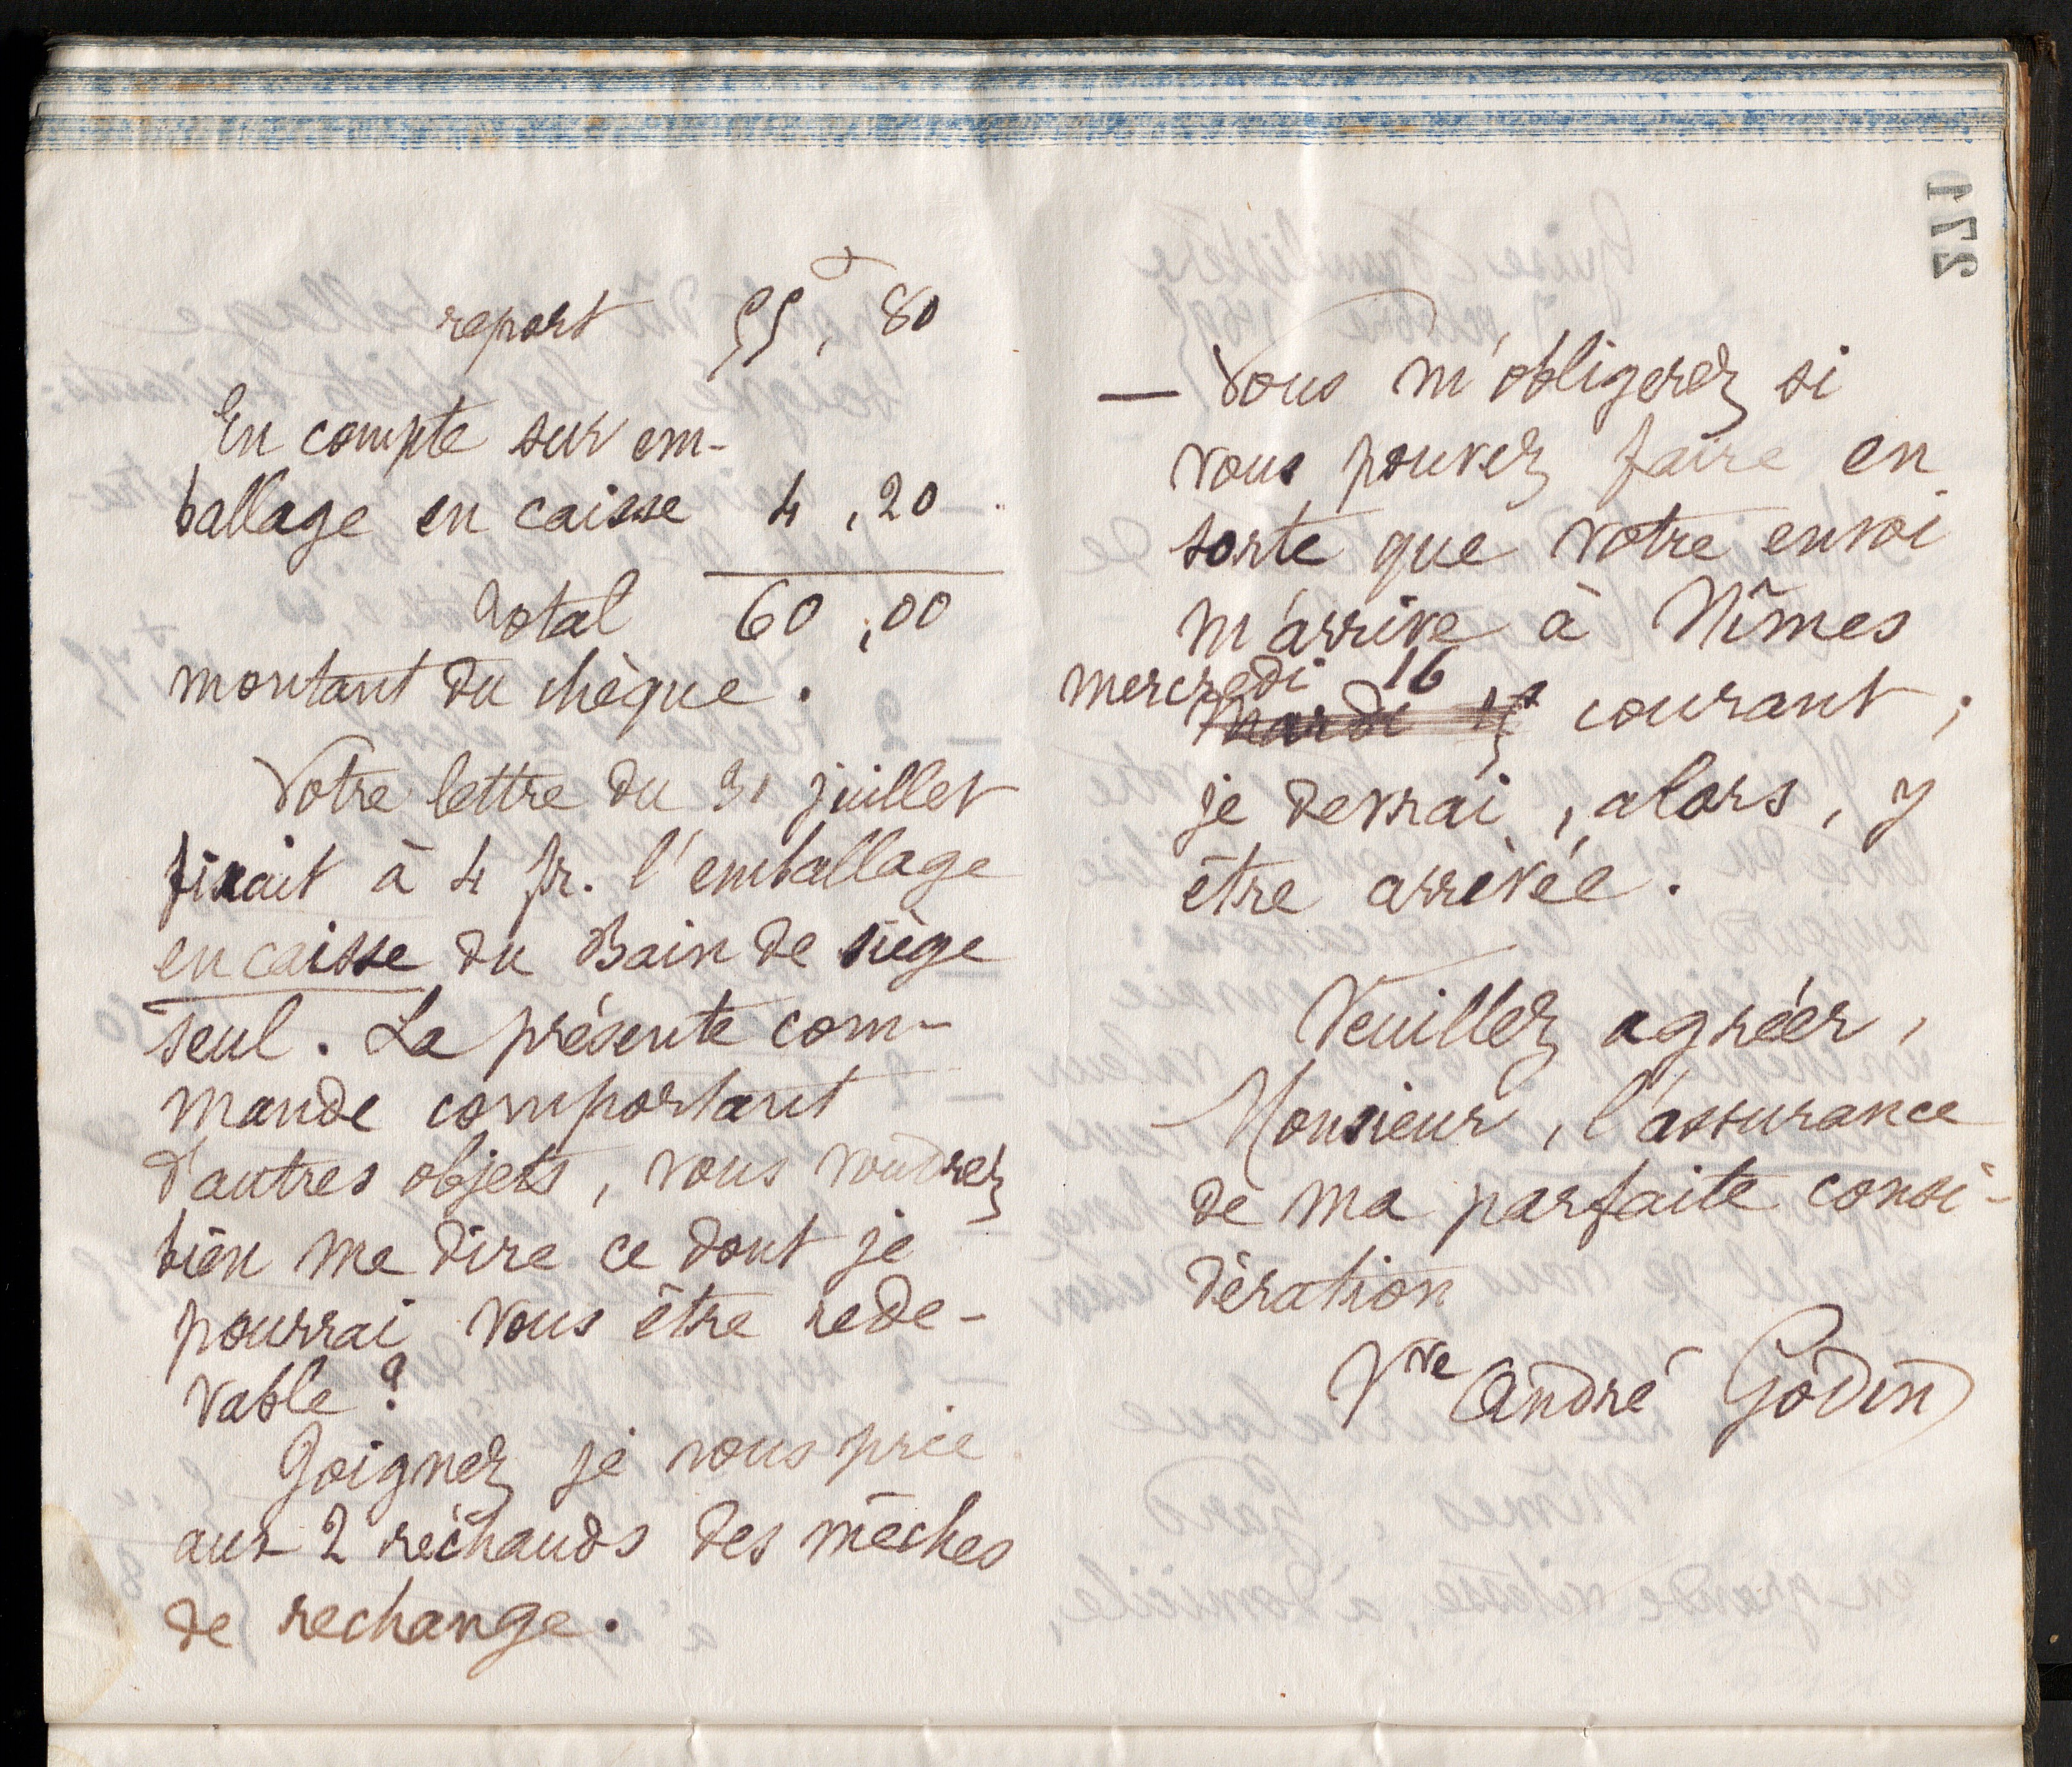 report 55f,80
En compte sur em-
ballage en caisse 4,20
total 60,00
montant du chèque.
Votre lettre du 31 juillet
fixait à 4 fr. l'emballage
en caisse du Bain de siège
seul. La présente com-
mande comportant
d'autres objets, vous voudrez
bien me dire ce dont je
pourrai vous être rede-
vable?
Joignez je vous prie
aux 2 réchauds des mèches
de rechange.
271
— Vous m'obligerez si
vous pouvez faire en
sorte que votre envoi
m'arrive à Nîmes
mercredi 16
mardi 15 courant;
je devrai, alors, y
être arrivée.
Veuillez agréer,
Monsieur, l'assurance
de ma parfaite consi-
dération
Vve André Godin